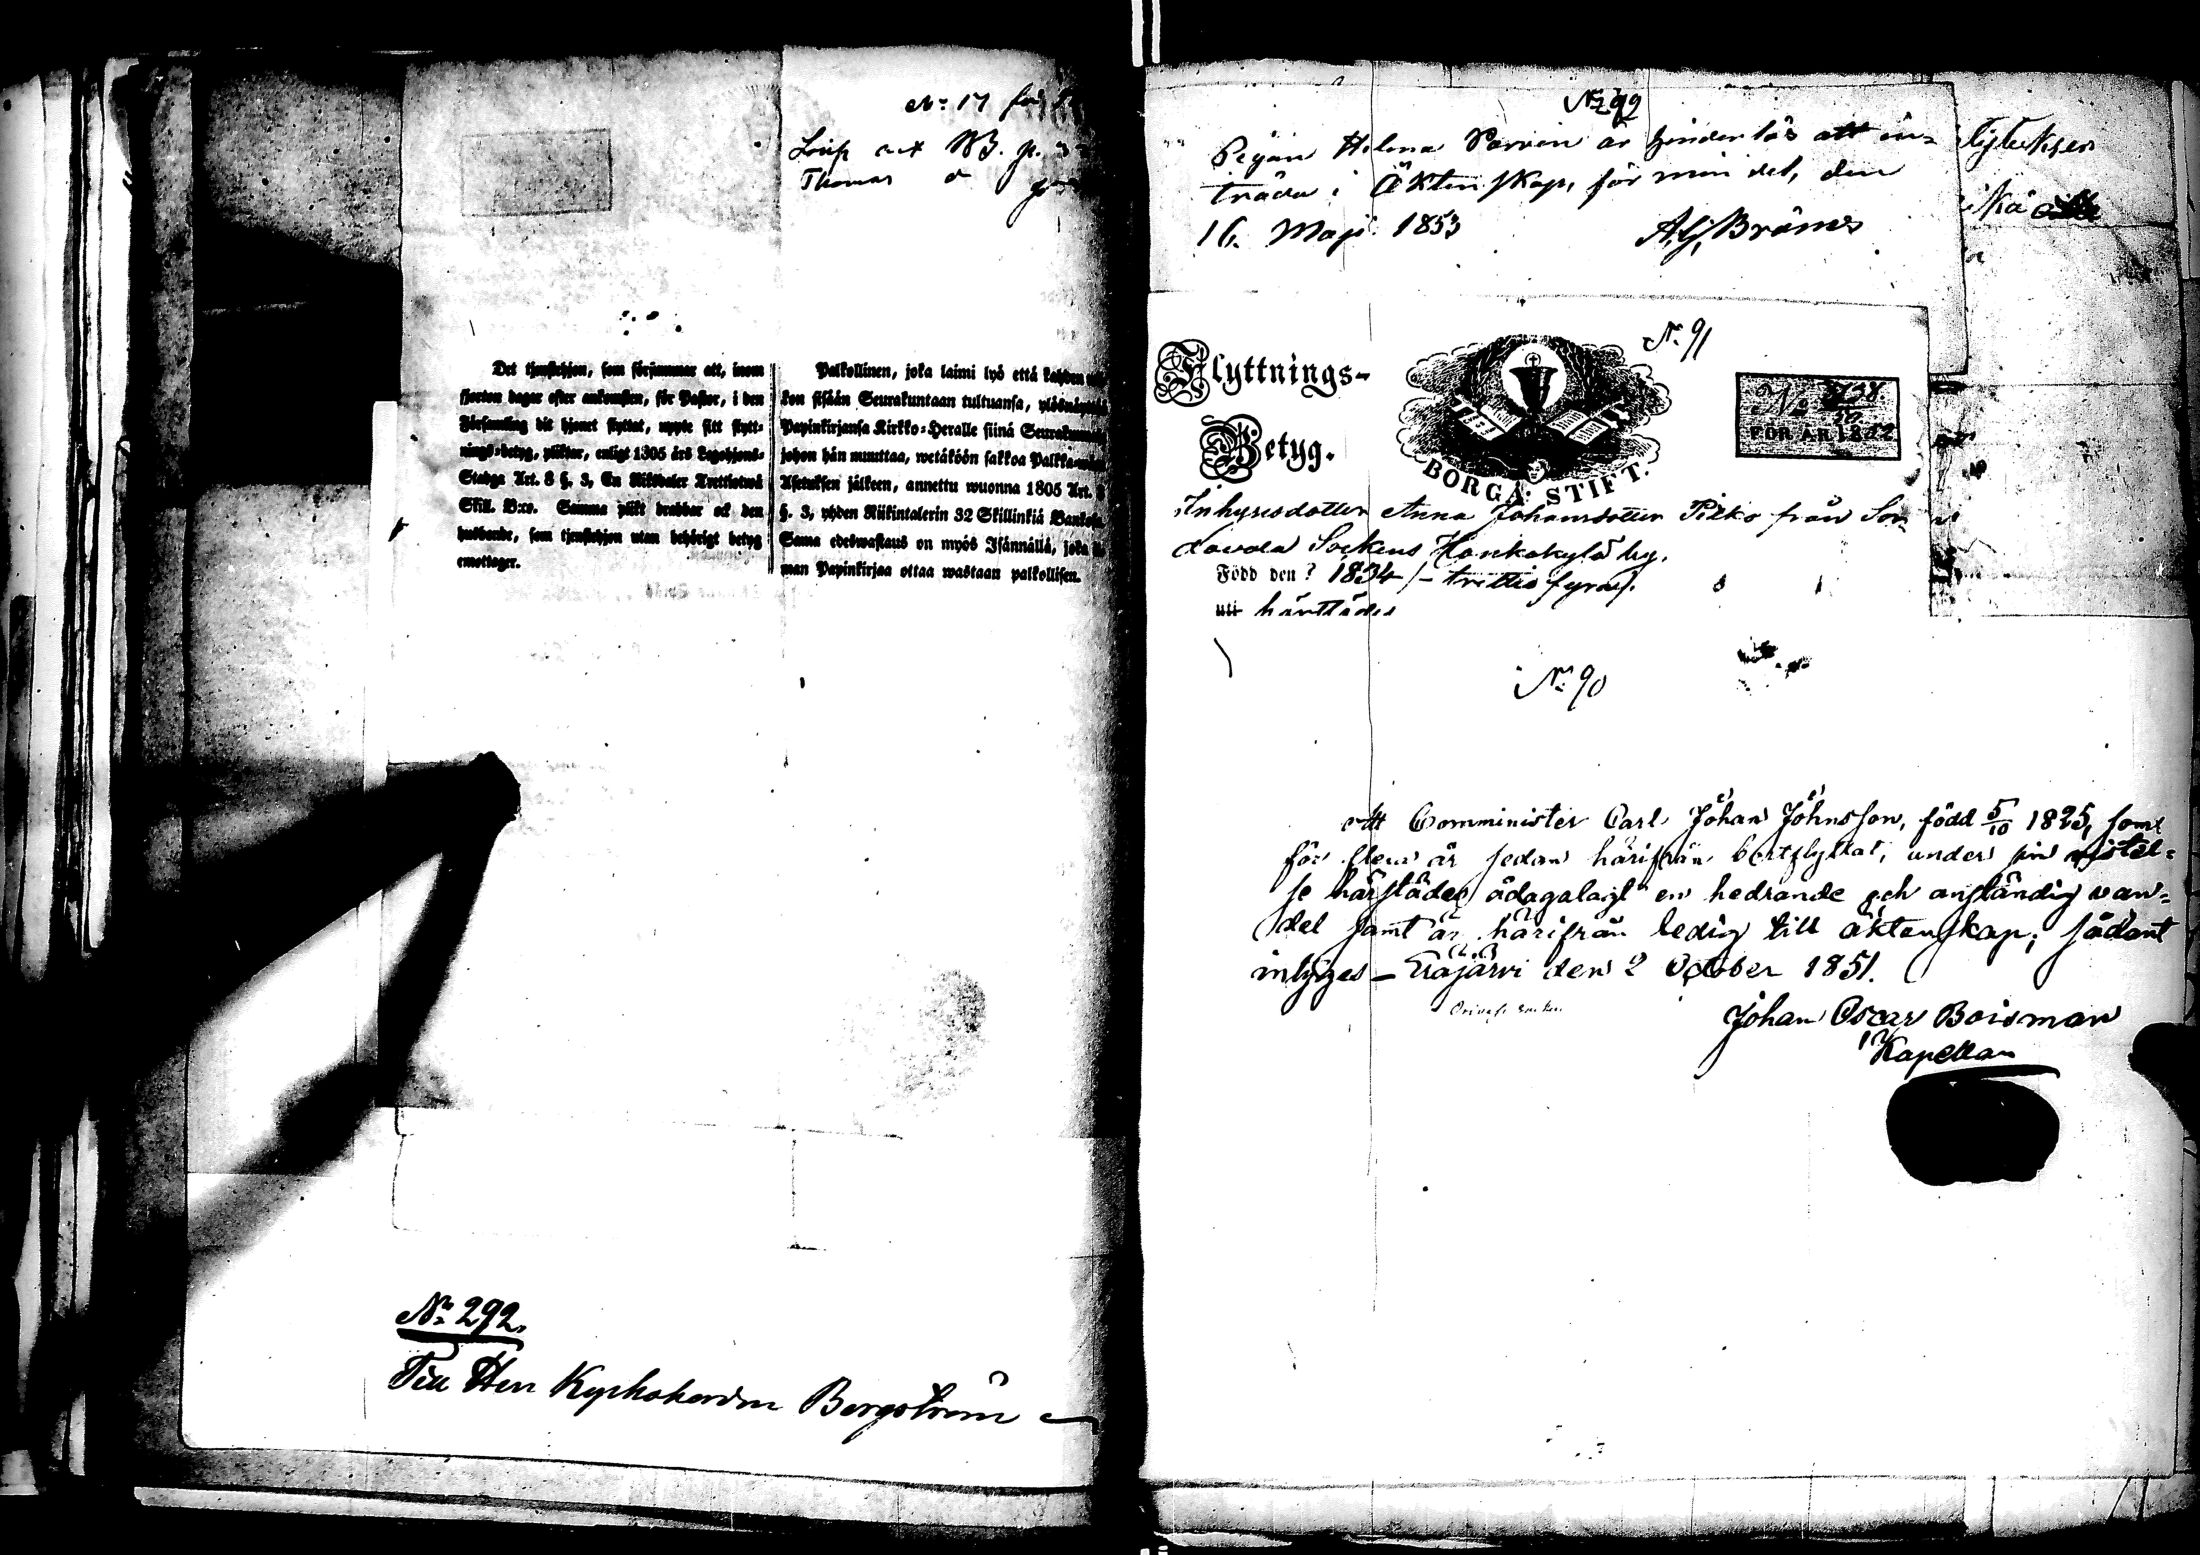 No 17
Thomas
Det tjenstehjon, som försummar att, inom
fjorton dagar efter ankomsten, för Pastor, i den
Församling dit hjonet flyttat, uppte sitt flytt-
nings-betyg, pliktar, enligt 1805 års Legohjons-
Stadga Art. 8 §. 3, En Riksdaler Trettiotwå
Skill. B:co. Samma plikt drabbar ock den
husbonde, som tjenstehjon utan behörigt betyg
emottager.
Palkollinen, joka laimi lyö että kahden
kon sisään Seurakuntaan tultuansa, ylösnäyttää
Papinkirjansa Kirkko-Heralle siinä Seurakunnassa
johon hän muuttaa, wetäköön sakkoa Palkka-
Asetuksen jälkeen, annettu wuonna 1805 Art.
§. 3, yhden Riikintalerin 32 Skillinkiä Banko
Sama edeswastaus on myös Isännällä, joka
man Papinkirjaa ottaa wastaan palkollisen.
No 292.
Till Herr Kyrkoherden Bergström
No 92
Pigan Helena Parvin är hinderlös att in-
träda i Äktenskap, för min del, den
16 Maji 1853 A. G. Bränes
No 91
Flyttnings-
Betyg.
BORGÅ STIFT.
No
FÖR ÅR 1852
Inhysesdotter Anna Johansdotter Pilko från Sor-
davala Sockens Honkakylä by.
Född den ? 1834 /-trettiofyra/.
uti härstädes
No 90
Att Comminister Carl Johan Johnsson, född 5/10 1825, som
för flera år sedan härifrån bortflyttat, under sin vistel-
se härstädes ådagalagt en hedrande och anständig van-
del samt är härifrån ledig till äktenskap; sådant
intygas - Eräjärvi den 2 October 1851.
Orivesi socken
Johan Oscar Boisman
Kapellan